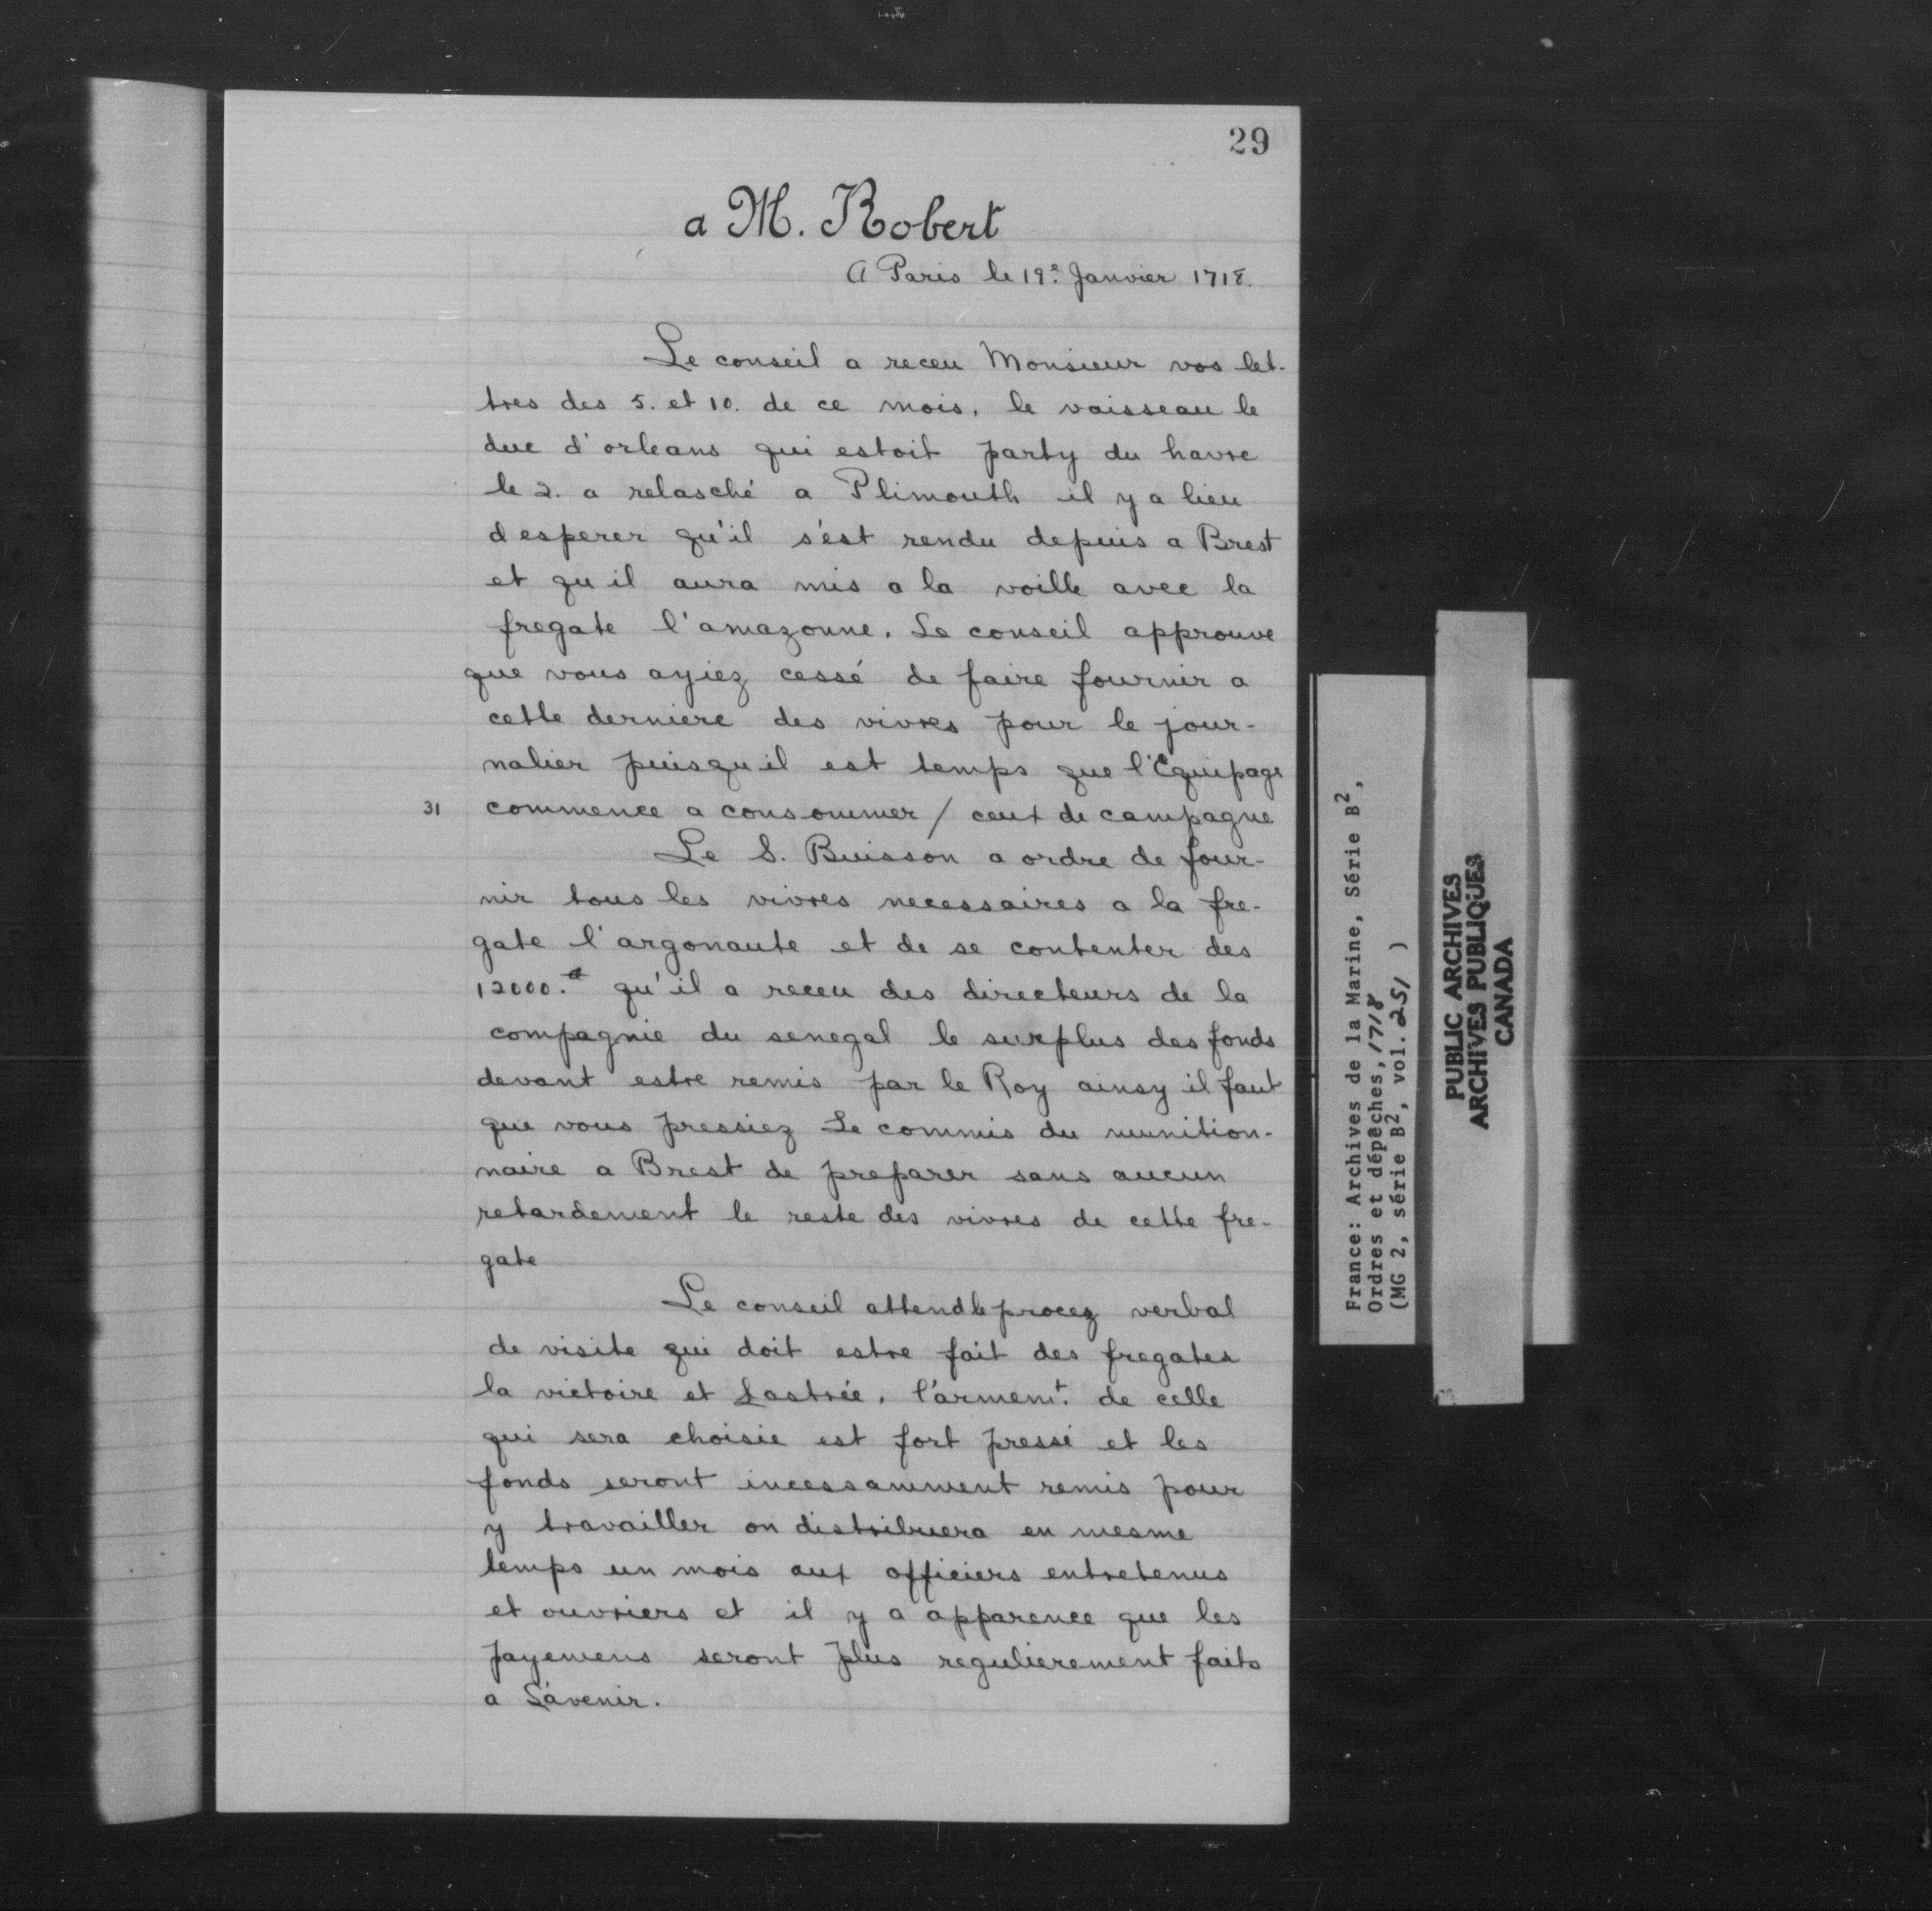 29
a M. Robert
A Paris le 19.e Janvier 1718.
Le conseil a receu Monsieur vos let-
tres des 5. et 10. de ce mois, le vaisseau le
duc d'orleans qui estoit party du havre
le 2. a relasché a Plimouth il y a lieu
d'esperer qu'il s'est rendu depuis a Brest
et qu'il aura mis a la voille avec la
fregate l'amazonne. Le conseil approuve
que vous ayiez cessé de faire fournir a
cette derniere des vivres pour le jour-
nalier puisqu'il est temps que l'Equipage
31 commence a consommer / ceux de campagne
Le S. Buisson a ordre de four-
nir tous les vivres necessaires a la fre-
gate l'argonaute et de se contenter des
12000. qu'il a receu des directeurs de la
compagnie du senegal le surplus des fonds
devant estre remis par le Roy ainsy il faut
que vous pressiez Le commis du munition-
naire a Brest de preparer sans aucun
retardement le reste des vivres de cette fre-
gate
Le conseil attend le procez verbal
de visite qui doit estre fait des fregates
la victoire et Lastrée, l'armem.t de celle
qui sera choisie est fort pressé et les
fonds seront incessamment remis pour
y travailler on distribuera en mesme
temps un mois aux officiers entretenus
et ouvriers et il y a apparence que les
payemens seront plus regulierement faits
a L'avenir.
France: Archives de la Marine, Série B2,
Ordres et dépêches, 1718
(MG 2, série B2, vol. 251 )
PUBLIC ARCHIVES
ARCHIVES PUBLIQUES
CANADA